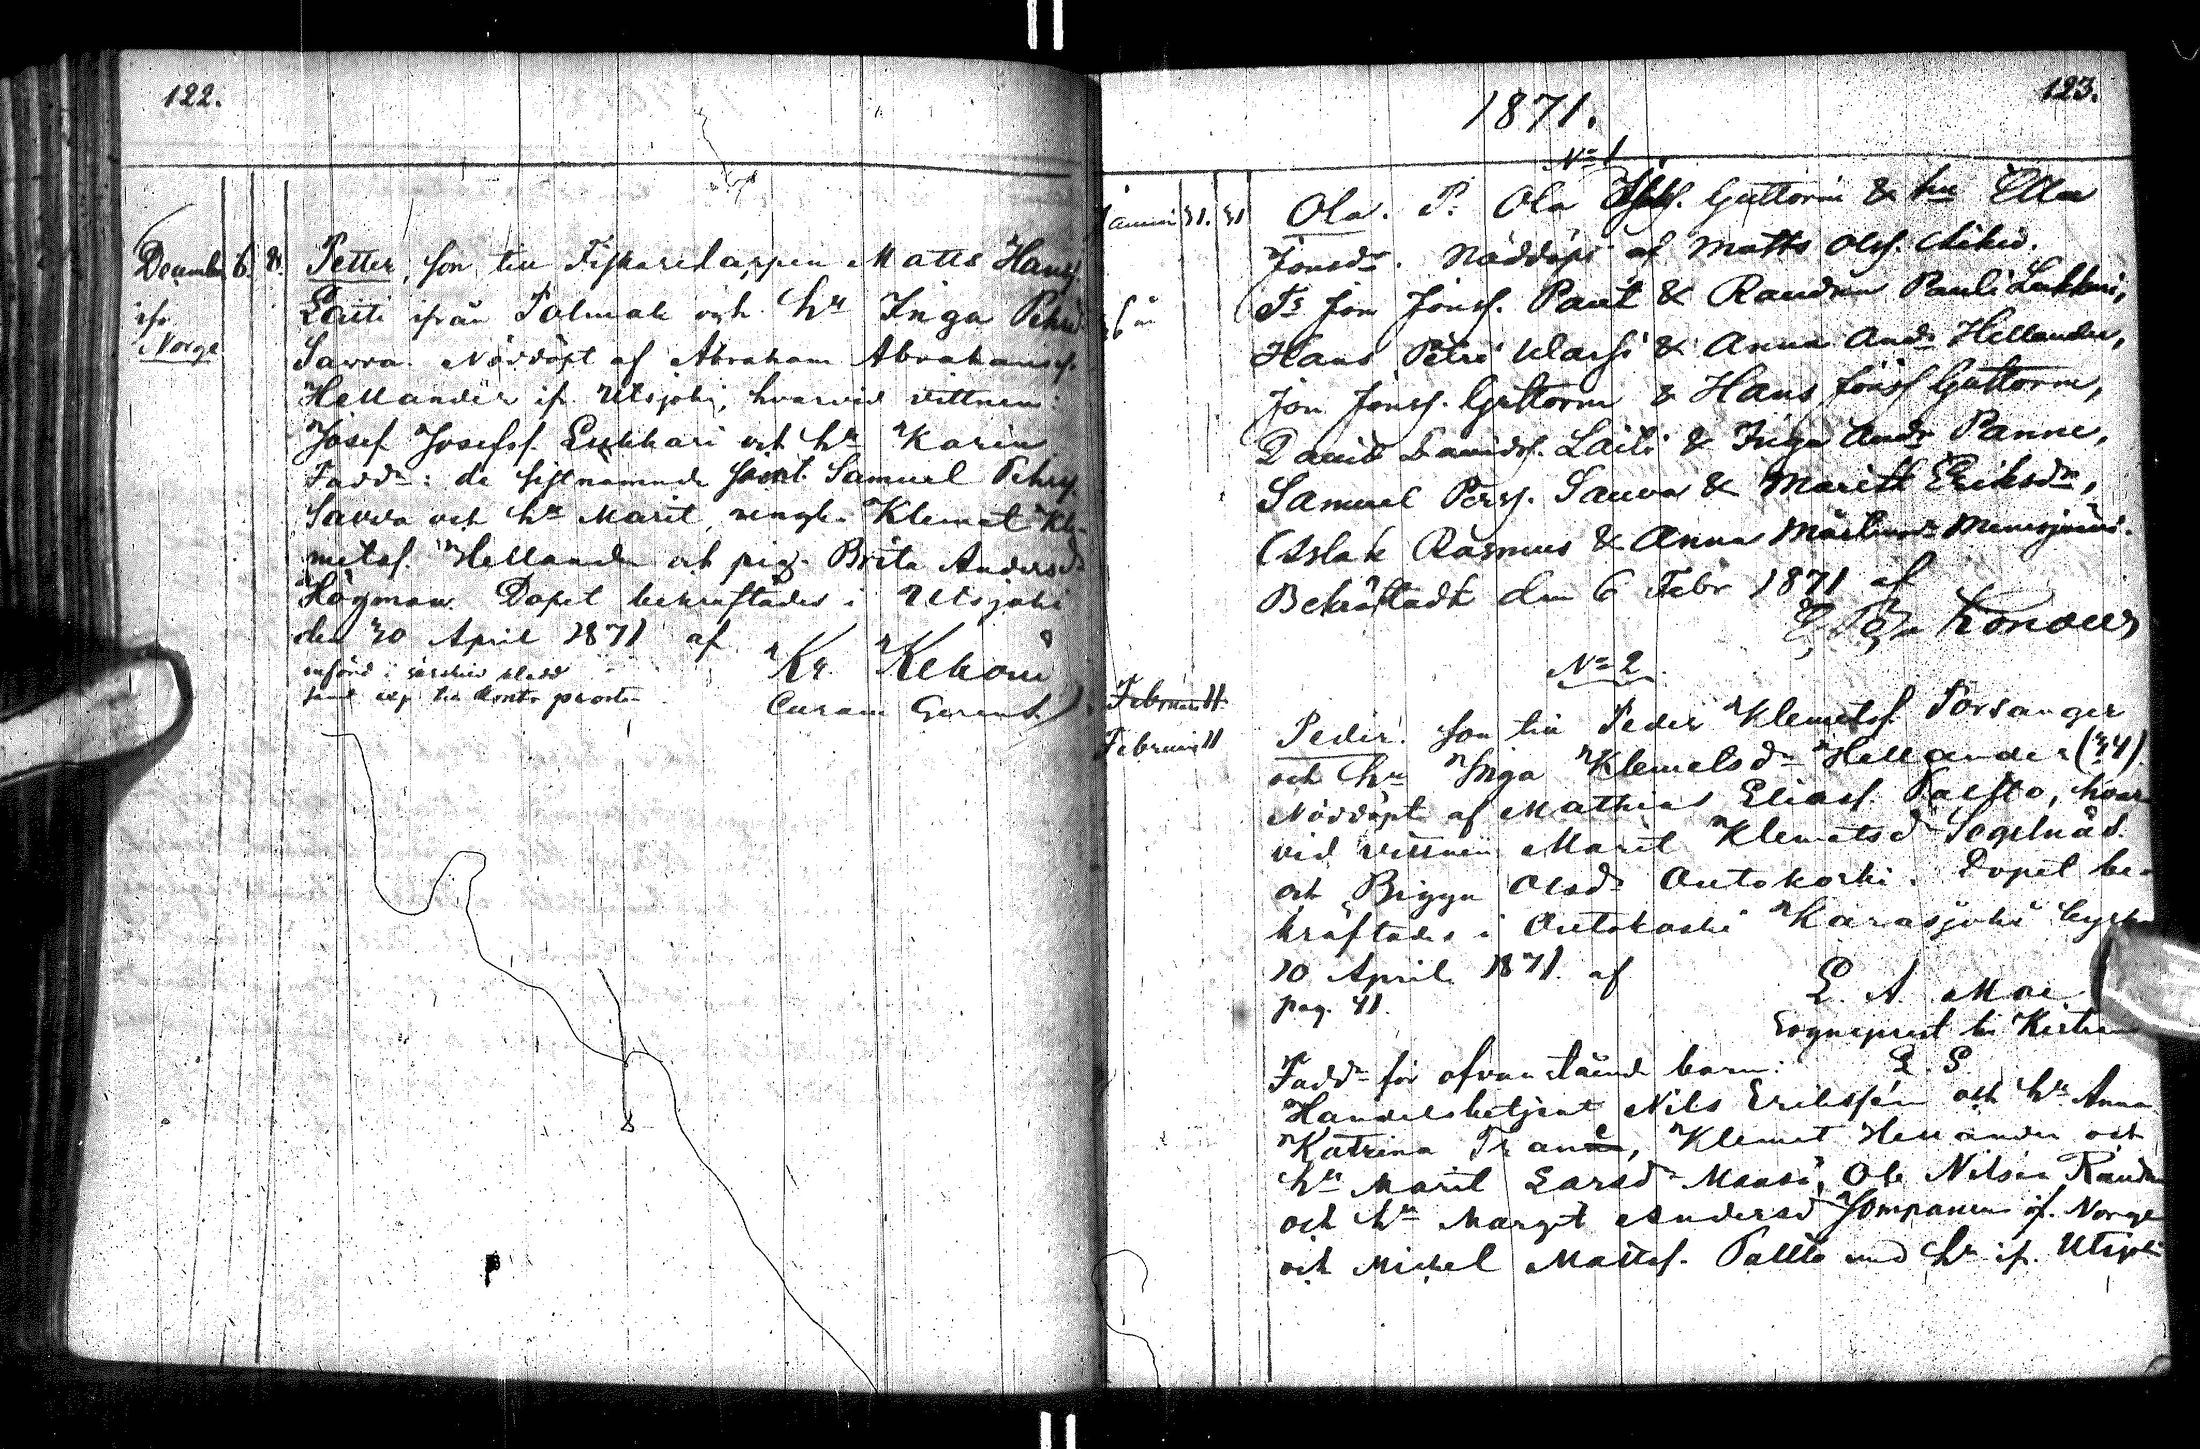 122.
December 6. 8.
ifr
Norge
Petter, son till Fiskarelappen Matts Hanss.
Laiti ifrån Polmak och hu Inga Pehrsd
Savva. Nöddöpt af Abraham Abrahamss.
Hellander ifr. Utsjoki, hvarvid vittnen:
Josef Josefss. Lukkari och hu Karin
Fadd: de sistnämnde samt Samuel Pehrs.
Savva och hu Marit, yngl. Klemet Kle-
metss. Hellander och pig. Brita Andersd
Högman. Dopet bekräftades i Utsjoki
den 10 April 1871 af
Kr. Kekoni
införd i särskild bladd
samt exp till Kontr prosten
Curam Gerens)
123.
1871.
No 1
Januari 31. 31
Ola. P. Ola Guttorm & hu Ella
Jonsdr. Nöddöpt af Matts Olss.
Ts Jon Jonss. Paut & Raudna Pauli Lukkari,
Hans Petri & Anna Andr Hellander,
Jon Jonss. Guttorm & Hans Jonss Guttorm,
David Davidss. Laiti & Inga Andr Panne,
Samuel Perss. Sauva & Marith Eriksdr,
Aslak Rasmus & Anna
Bekräftadt den 6 Febr 1871 af
No 2
Februari 11
Februari 11
Peder. son till Peder Klemetss. Porsanger
och hu Inga Klemetsdr Hellander (44).
Nöddöpt af Mathias Eliass. Palsto, hvar
vid vittnen Marit Klemetsd
och Bigga Olsdr Outakoski. Dopet be-
kräftades i Outakoski Karasjoki
10 April 1871. af
pag. 41.
L. A. Moe.
Sogneprest til
L. S.
Fadd för ofvanstående barn:
Handelsbetjent Nils Erikssen och hu Anna
Katrina Trane, Klemet Hellander och
hu Marit Larsd Ole Nilsen
och hu Margit Andersd Jompanen if. Norge
och Michel Mattss. Palsto med hu if. Utsjoki